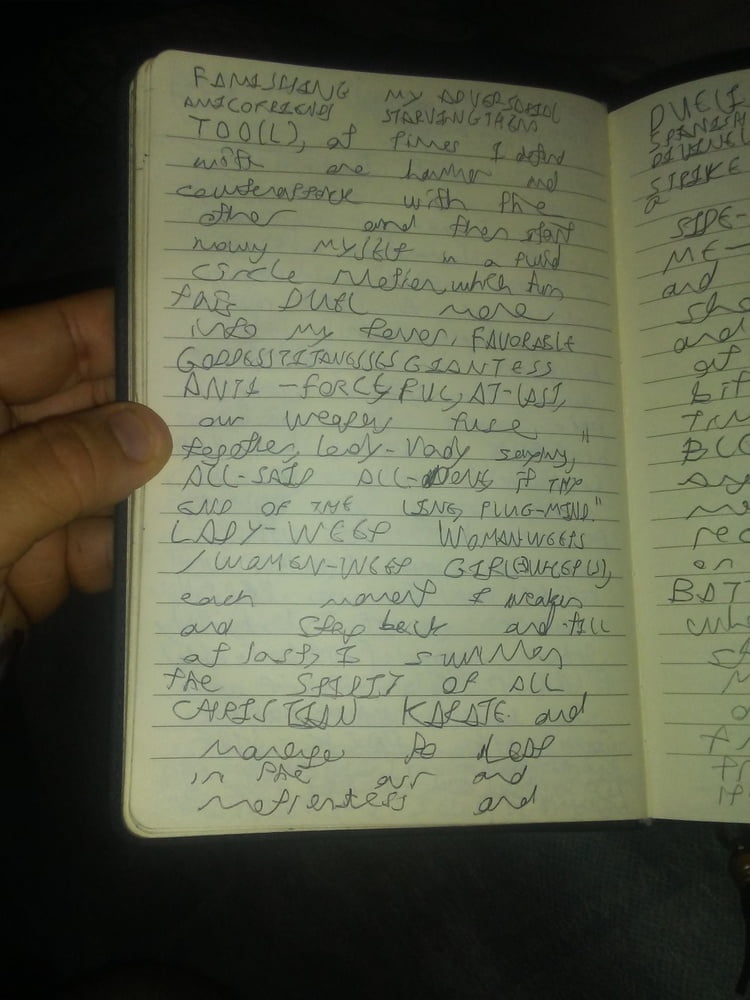 FAMISHING MY ADVERSARIAL
AMICOFRIENDS STARVINGTHEM
TOO(L), at times I defend
with one hammer and
counterattack with the
other and then start
moving MYSELF in a fluid
circle motion, which turn
the DUEL more
into my favor, FAVORABLE
GODDESSTITANESSES GIANTESS
ANTI-FORCEFUL, AT-LAST,
our weapons fuse
together, lady-Vady saying, "
ALL-SAID ALL-DONE, IT THE
END OF THE LINE, PLUG-MIND."
LADY-WEEP WOMANWEEPS
/WOMEN-WEEP GIRL(S)WEEP(S),
each moment I weaken
and step back and till
at last, I summon
the SPIRIT OF ALL
CHRISTIAN KARATE and
manage to LEAP
in the air and
motionless and
DUELI
SPANISH
DIVINEL
STRIKE
a
SIDE-
ME-
and
she
and
at
bit
BLO
me
rec
on
BAT